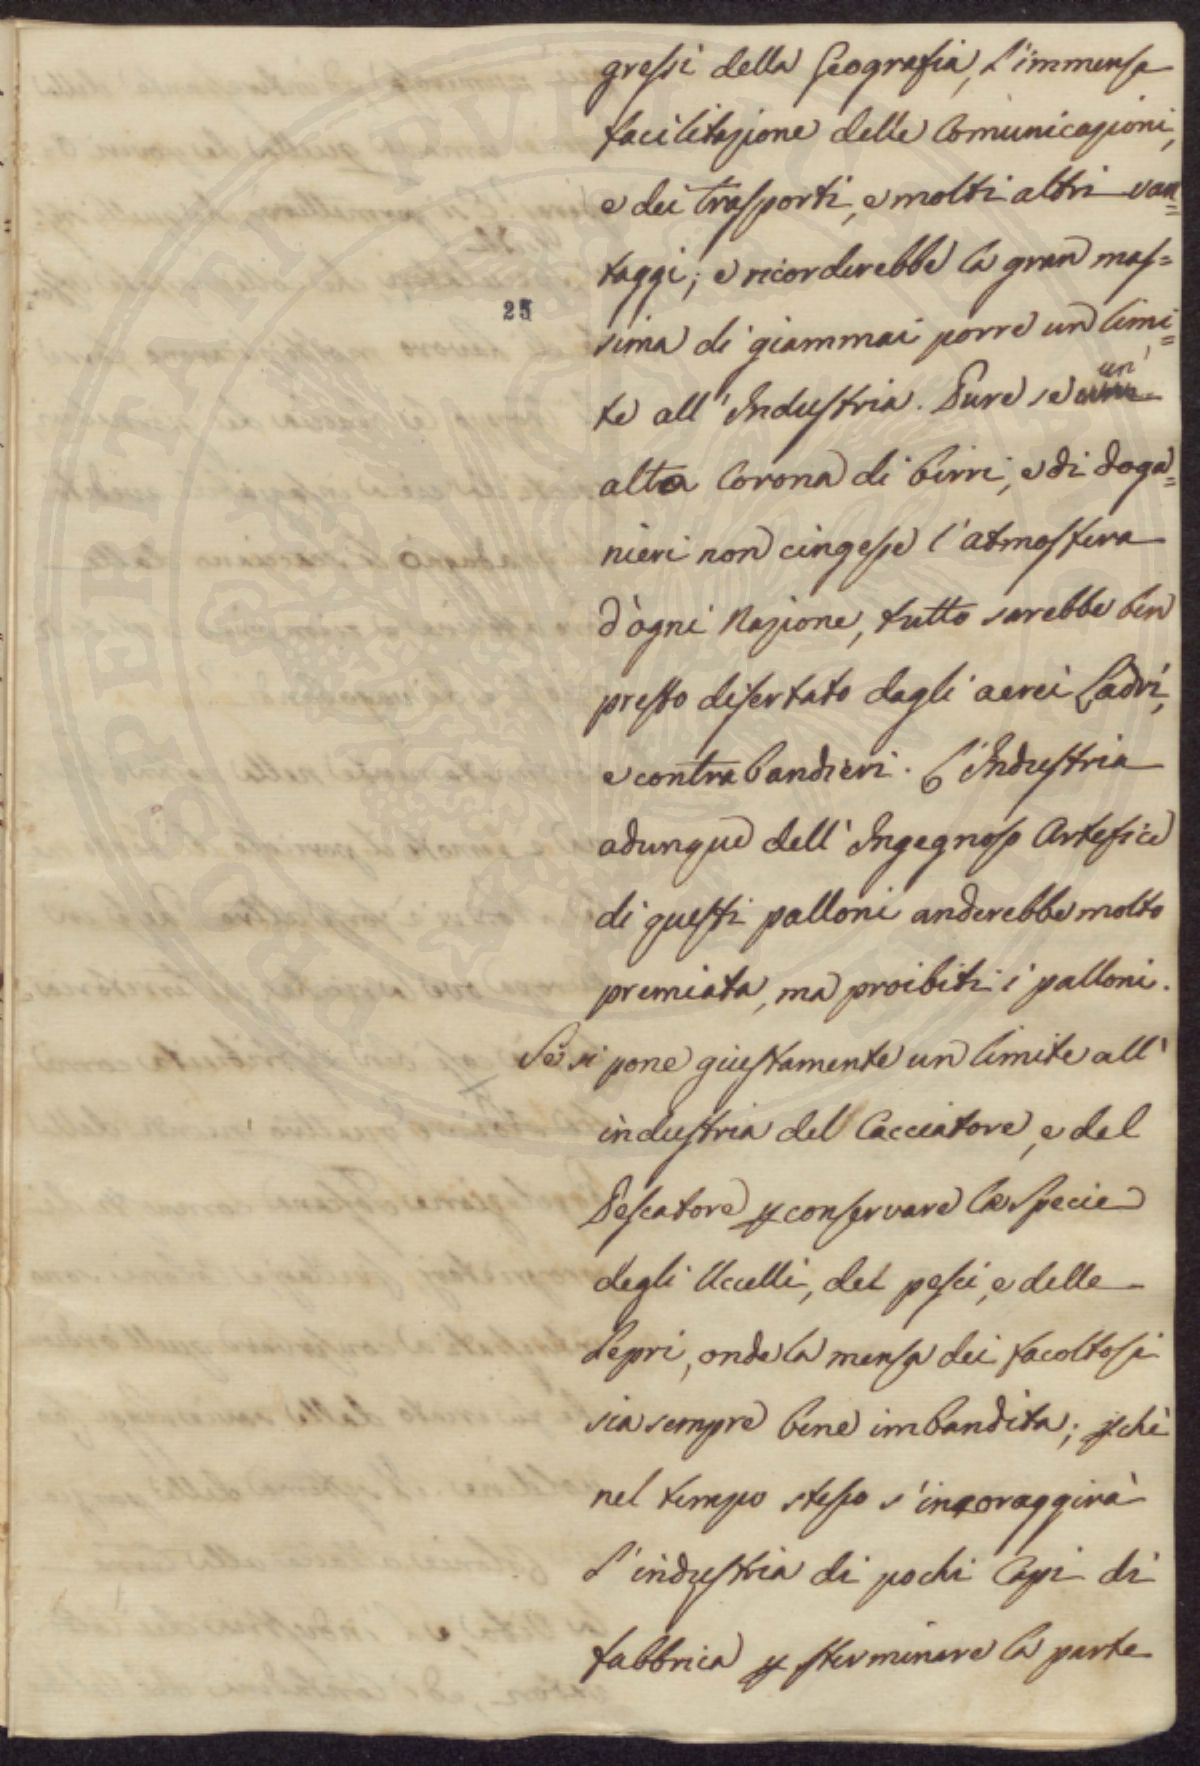 gressi della Geografia, l'immensa
facilitazione delle Comunicazioni,
e dei Trasporti, e molti altri van=
taggi; e ricorderebbe la gran mas=
25
sima di giammai porre un limi=
te all'Industria. Pure se un'
alta Corona di birri, e di doga=
nieri non cingesse l'atmosfera
d'ogni Nazione, tutto sarebbe ben
presto disertato dagli aerei Ladri,
e contrabandieri. L'Industria
adunque dell'Ingegnoso Artefice
di questi palloni anderebbe molto
premiata, ma proibiti i palloni.
Se si pone giustamente un limite all'
industria del Cacciatore, e del
Pescatore p conservare la Specie
degli Uccelli, dei pesci, e delle
Lepri, onde la mensa dei facoltosi
sia sempre bene imbandita; pchè
nel tempo stesso s'incoraggirà
l'industria di pochi Capi di
fabbrica p sterminare la parte
PROSPERITATI PVBLICAE